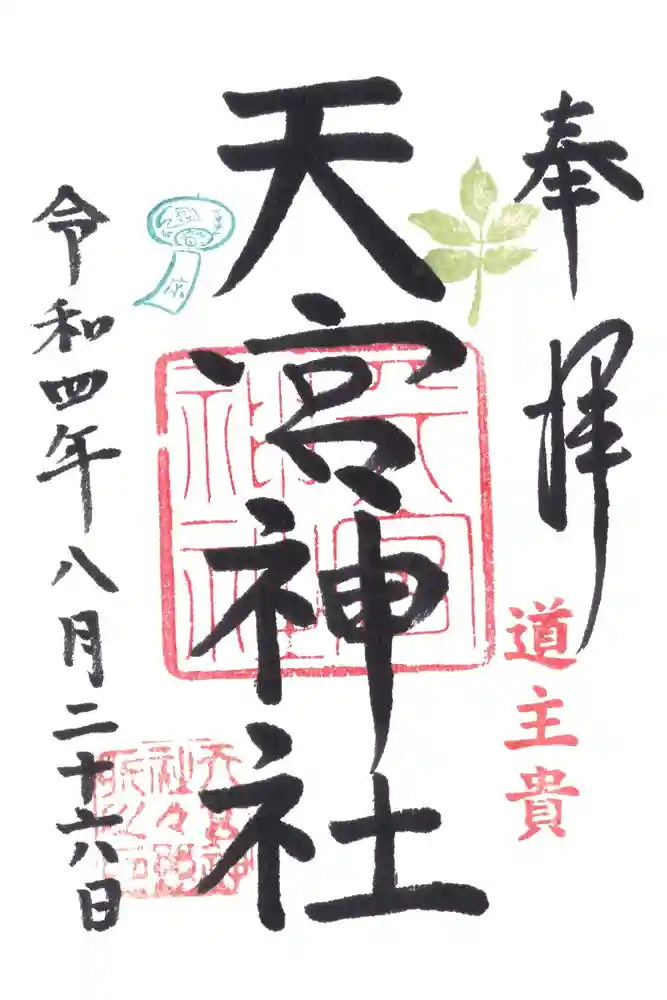 奉拝
道主貴
天宮神社
天宮神社
令和四年八月二十六日